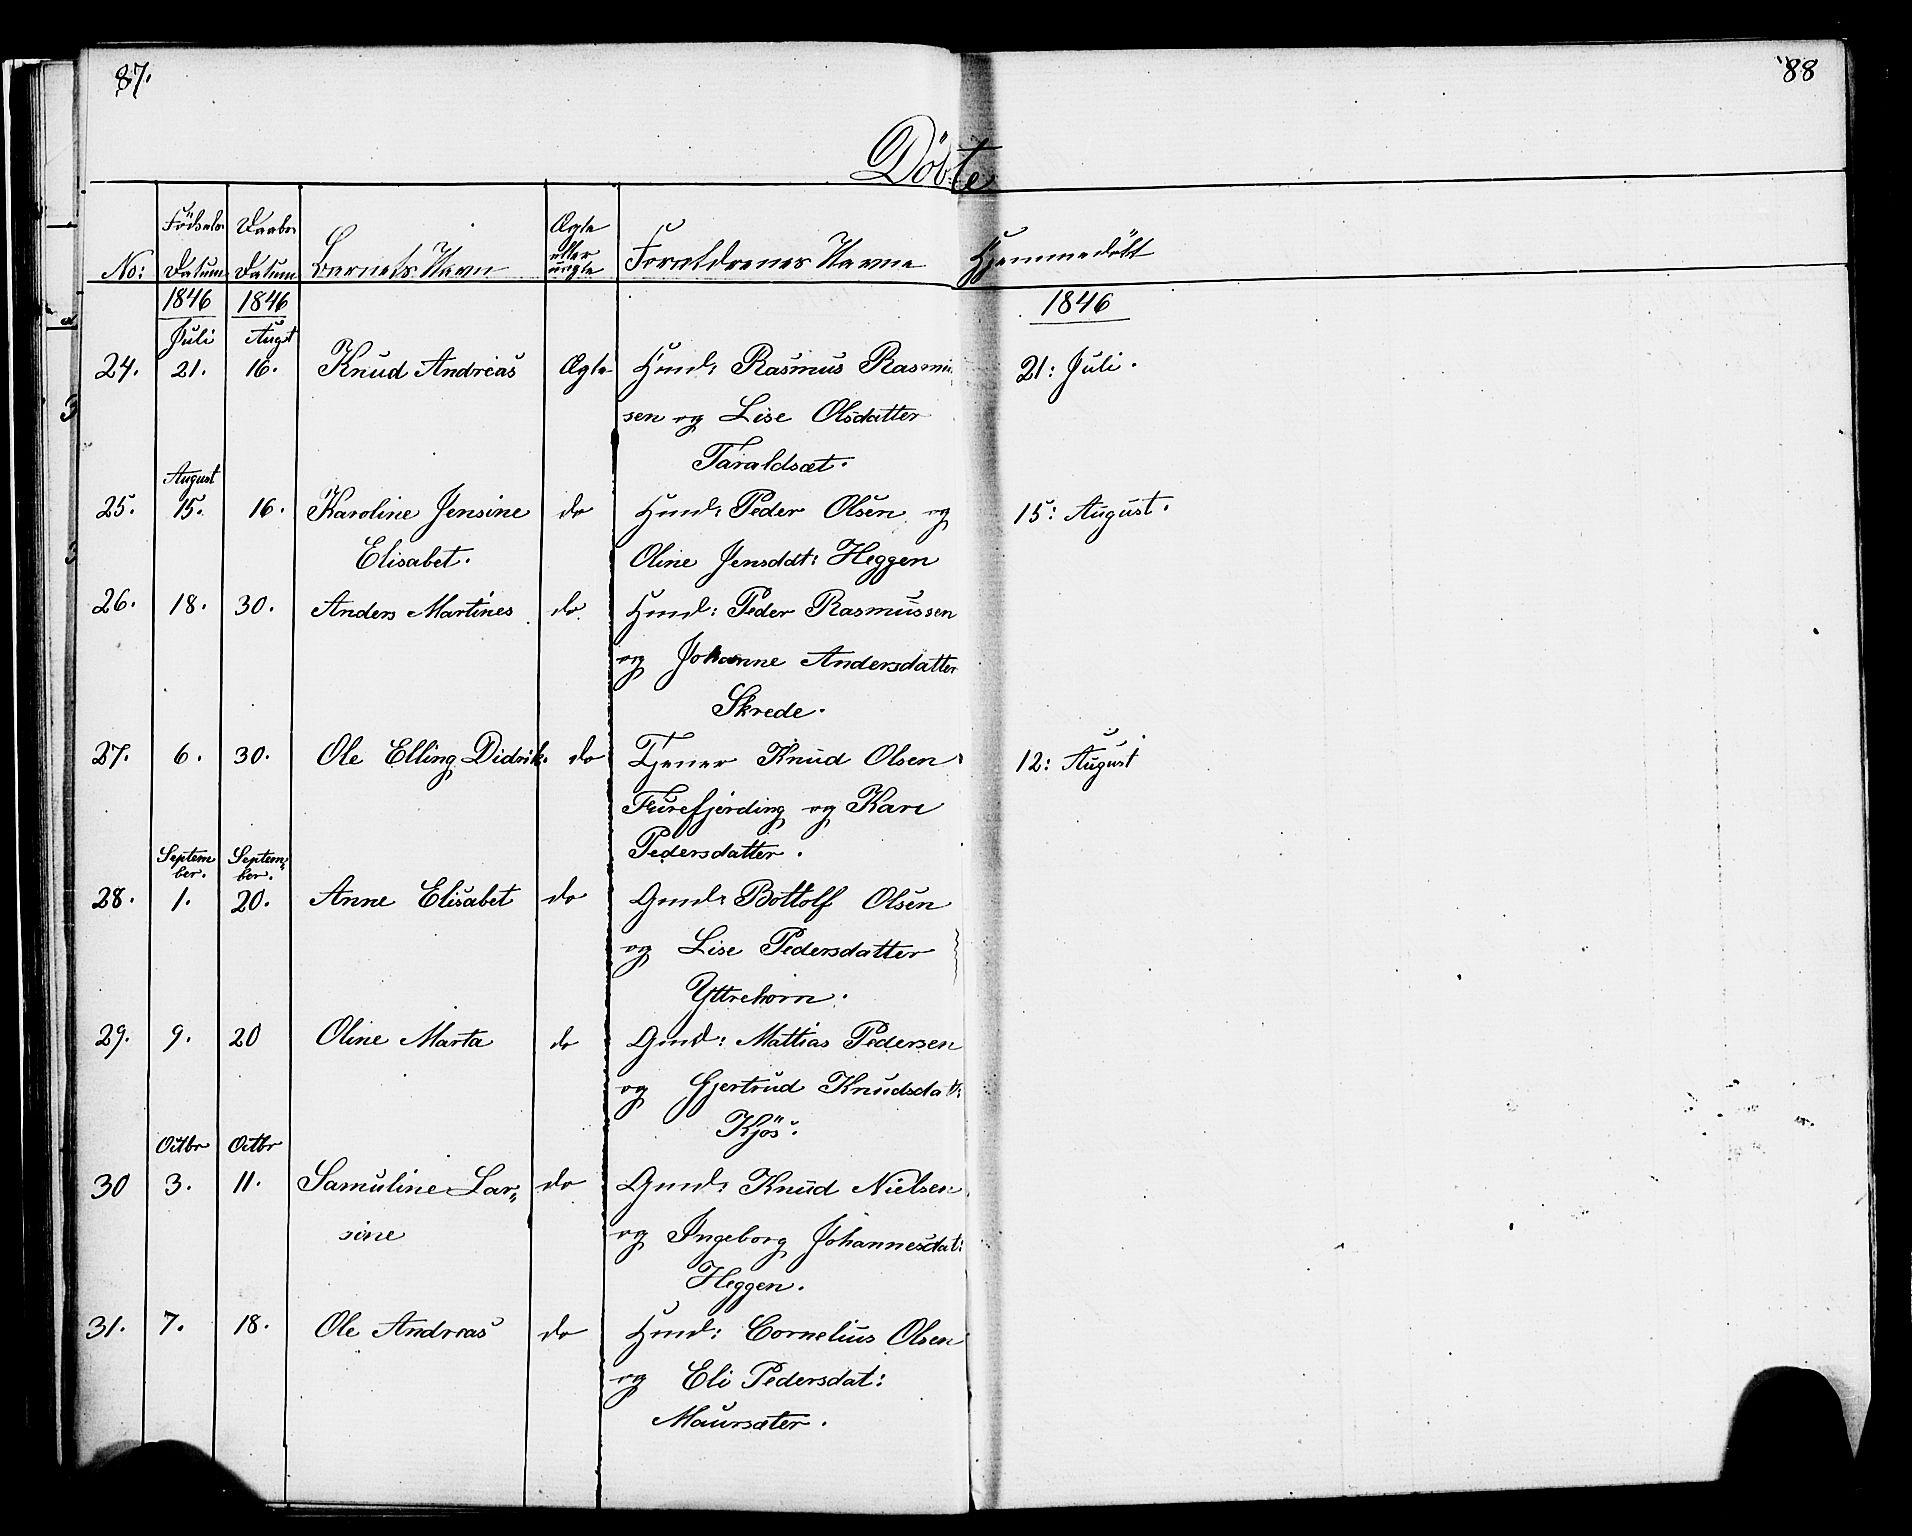 87.
88
Döbte
No: Födsels Datum Daabs Datum Barnets Navn Ægte eller uægte Forældrenes Navne Hjemmedöbt
1846 1846 1846
Juli Augst
24. 21. 16. Knud Andreas Ægte Hmd: Rasmus Rasmus 21: Juli.
sen og Lise Olsdatter
Taraldsæt.
August
25. 15. 16. Karoline Jensine do Hmd: Peder Olsen og 15: August.
Elisabet. Oline Jensddt: Heggen
26. 18. 30. Anders Martines do. Hmd: Peder Rasmussen
og Johanne Andersdatter
Skrede.
27. 6. 30. Ole Elling Didrik. do Tjener Knud Olsen 12: August
Furefjording og Kari
Pedersdatter.
Septem Septem„
ber. ber.
28. 1. 20. Anne Elisabet do Gmd: Bottolf Olsen
og Lise Pedersdatter
Yttrehorn.
29. 9. 20 Oline Marta do Gmd: Mattias Pedersen
og Gjertrud Knudsdat:
Kjös.
Octbr Octbr
30 3. 11. Samuline Lar„ do Gmd: Knud Nielsen
sine og Ingeborg Johannesdat:
Heggen.
31. 7. 18. Ole Andreas do Hmd: Cornelius Olsen
og Eli Pedersdat:
Maursæter.